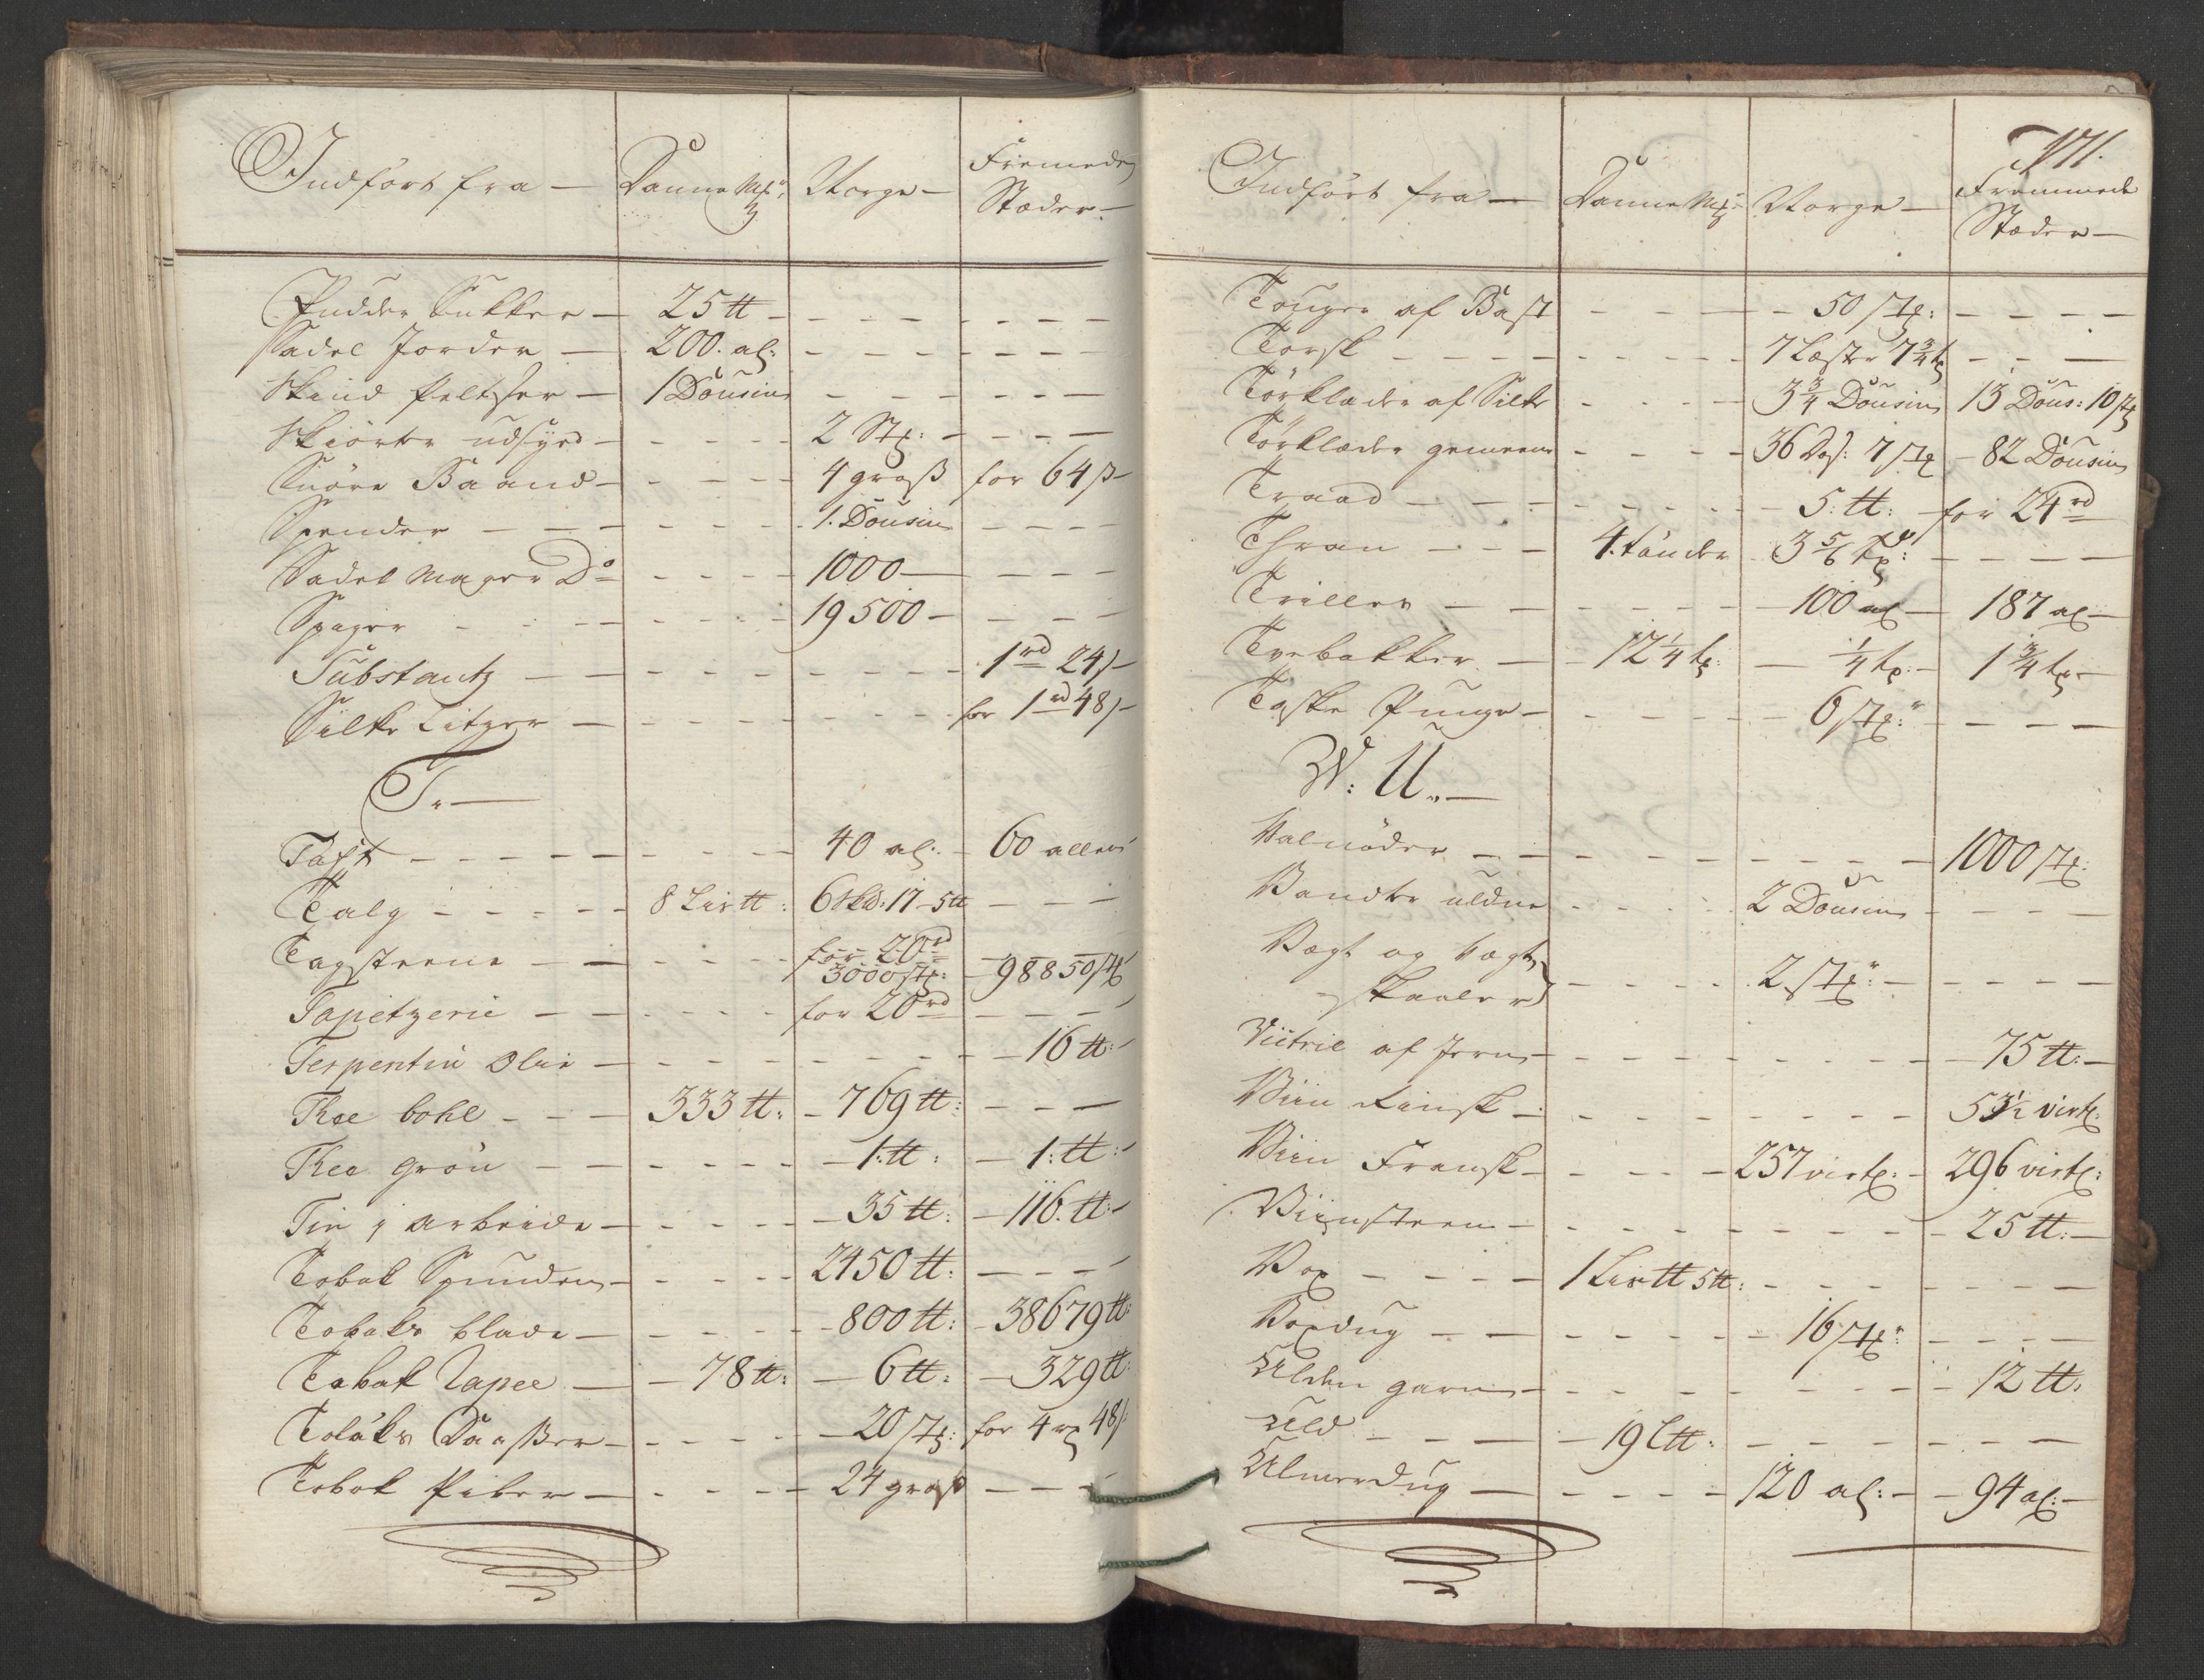 Indført fra — Danne M: Norge — Fremede
Stæder —
Pudder Sukker — 25 tt - - - - - - -
Sadel Jorder — 200. al: - - - - - - -
Skind Peltser — 1 Dousin - - - - - -
Skiorter udsyed - - - - - 2 Stx: - - - -
Snöre Baand - - - - - 4 gross for 64 s -
Spender - - - - - - - 1. Dousin - - - -
Sadel mager Do - - - - - 1000 — - - -
Spiger - - - - - - - 19500 - - - -
Substantz - - - - - - - - - 1 rd 24 s -
Silke Litzer - - - - - - - - for 1 rd 48 s -
T. —
Taft - - - - - - - - - 40 al: - 60 allen
Talg - - - - - 8 Lis tt : 6 skd: 17 - 5 tt - - -
Tagsteene - - - - - for 20 rd
3000 stx: - 98850 stx
Tapetzerie - - - - - - for 20 rd - - - -
Terpentin Olie - - - - - - - - - 16 tt: -
Thee bohe - - - 333 tt: - 769 tt: - - -
Thee grön - - - - - - - 1: tt : - 1: tt: -
Tin i arbeide - - - - - - 35 tt: - 116. tt: -
Tobak Spunden - - - - - 2450 tt: - - - -
Tobaks blade - - - - - 800 tt: - 38679 tt:
Tobak Rapee — - 78 tt: - 6 tt: - 329 tt:
Tobaks Daaßer - - - - - 20 stx: for 4 rx 48 s
Tobak Piber - - - - - 24 gross - - -
171.
Indført fra — Danne M: Norge — Fremmede
Stæder —
Touger af Bast - - - - 50 stx: - - - -
Torsk - - - - - - - - - 7 Læster 7 3/4 tx - - -
Törklæder af Silke - - - - 3 3/4 Dousin 13 Dous: 10 stx
Törklæder gemeene - - - - 36 Dos: 7 stx - 82 Dousin
Traad - - - - - - - - - 5: tt: - for 24 rd
Thran - - - 4. tönder 3 5/6 tx: - - - -
Triller - - - - - - - - 100 al - 187 al -
Tvebakker — - 12 1/4 tx: - 1/4 tx: - 1 3/4 tx -
Taske Punge - - - - - - 6 stx: - - -
W: U. —
Valnöder - - - - - - - - - - 1000 stx:
Vandter uldne - - - - 2 Dousin - - - -
Vægt og Vægt
skaaler - - - - 2 stx: - - - - -
Victril af Jern - - - - - - - - - 75 tt: -
Viin Rinsk - - - - - - - - 5 3 1/2 virtx:
Viin Fransk - - - - - 257 virtx: - 296 virtx:
Viinsteen - - - - - - - - - 25 tt: -
Vox - - - - - 1 Lis tt 5 tt: - - - - - -
Voxdug - - - - - - - 16 stx: - - - -
Ulden garn - - - - - - - - - 12 tt.
Uld - - - - 19 L tt: - - - - - - -
Ulmerdug - - - - - 120 al: - - 94 al: -